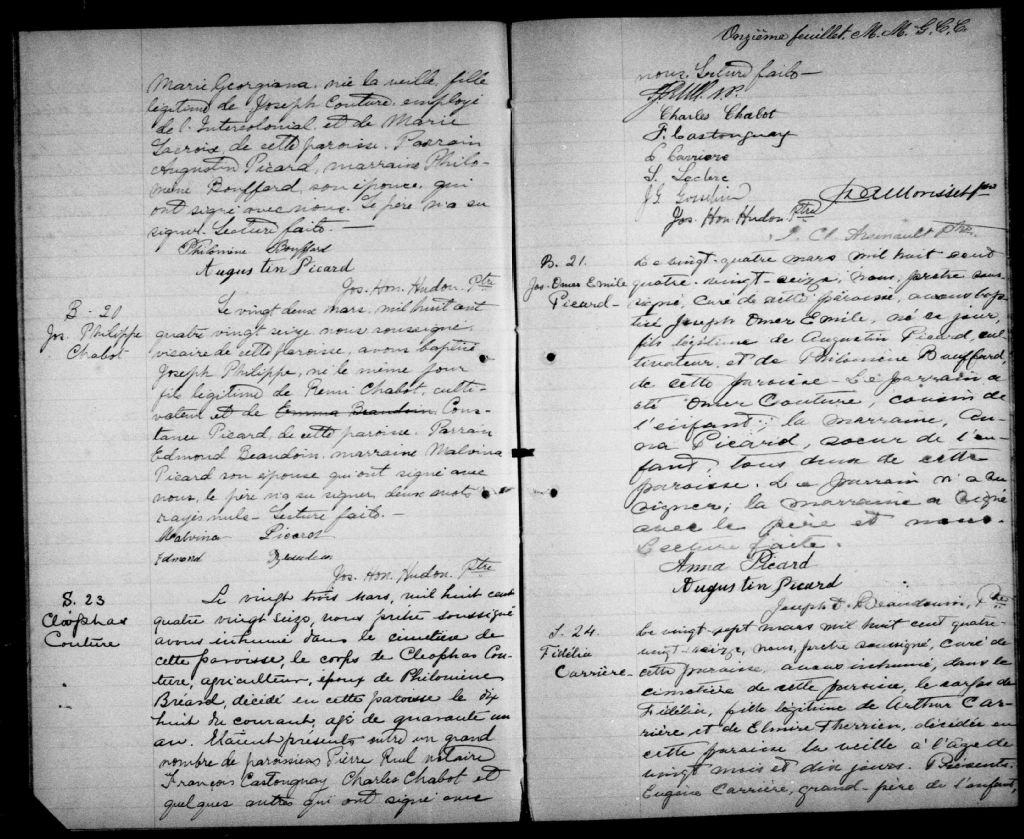 Marie Georgiana, née la veille, fille
légitime de Joseph Couture, employé
de l'Intercolonial, et de Marie
Lacroix, de cette paroisse. Parrain
Augustin Picard, marraine Philo-
mène Bouffard, son épouse, qui
ont signé avec nous. Le père n'a su
signer. Lecture faite.—
Philomène Bouffard
Augustin Picard
Jos. Hon. Hudon. Ptre
B - 20
Jos. Philippe
Chabot
Le vingt deux mars, mil huit cent
quatre vingt seize nous soussigné,
vicaire de cette paroisse, avons baptisé
Joseph Philippe, né le même jour
fils légitime de Remi Chabot, culti-
vateur et de Emma Beaudoin, Cons-
tance Picard, de cette paroisse. Parrain
Edmond Beaudoin, marraine Malvina
Picard son épouse qui ont signé avec
nous, le père n'a su signer, deux mots
rayés nuls - Lecture faite.-
Malvina Picard
Edmond
Jos. Hon. Hudon. Ptre
S. 23
Cléophas
Couture
Le vingt trois Mars, mil huit cent
quatre vingt seize, nous prêtre soussigné
avons inhumé dans le cimetière de
cette paroisse, le corps de Cleophas Cou-
ture, agriculteur, époux de Philomène
Bréard, décédé en cette paroisse le dix
huit du courant, agé de quarante un
an. Etaient présents entre un grand
nombre de paroissiens Pierre Ruel notaire
François Castonguay Charles Chabot et
quelques autres qui ont signé avec
Onzième feuillet. M. M. G. C. C.
nous. Lecture faite—
Charles Chabot
F. Castonguay
Carriere
S. Leclerc
J G
Morisset ptre
Jos. Hon. Hudon. Ptre
Arsenault Ptre
B. 21.
Jos. Omer Emile
Picard -
Le vingt-quatre mars mil huit cent
quatre-vingt-seize, nous, prêtre sous-
signé, curé de cette paroisse, avons bap-
tisé Joseph Omer Emile, né ce jour,
fils légitime de Augustin Picard, cul-
tivateur, et de Philomène Bouffard,
de cette paroisse - Le parrain a
été Omer Couture, cousin de
l'enfant; la marraine, An-
na Picard, soeur de l'en-
fant, tous deux de cette
paroisse. Le parrain n'a su
signer; la marraine a signé
avec le père et nous.
Lecture faite.
Anna Picard
Augustin Picard
Joseph D. Beaudoin, Ptre
S. 24.
Fidélia
Carrière.
Le vingt-sept mars mil huit cent quatre-
vingt-seize, nous, prêtre soussigné, curé de
cette paroisse, avons inhumé, dans le
cimetière de cette paroisse, le corps de
Fidélia, fille légitime de Arthur Car-
rière et de Elmire Therrien, décédée en
cette paroisse la veille à l'âge de
vingt mois et dix jours. Présents:
Eugène Carrière, grand-père de l'enfant,